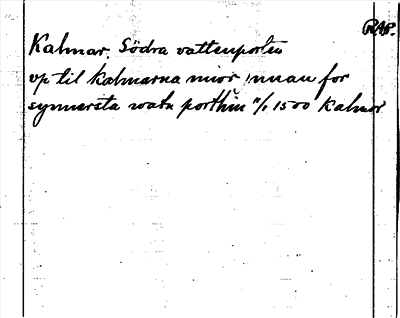 RAP.
Kalmar. Södra vattenporten
vp til kalmarna mior innan for
synnersta watn porthin n/1 1500 Kalmar